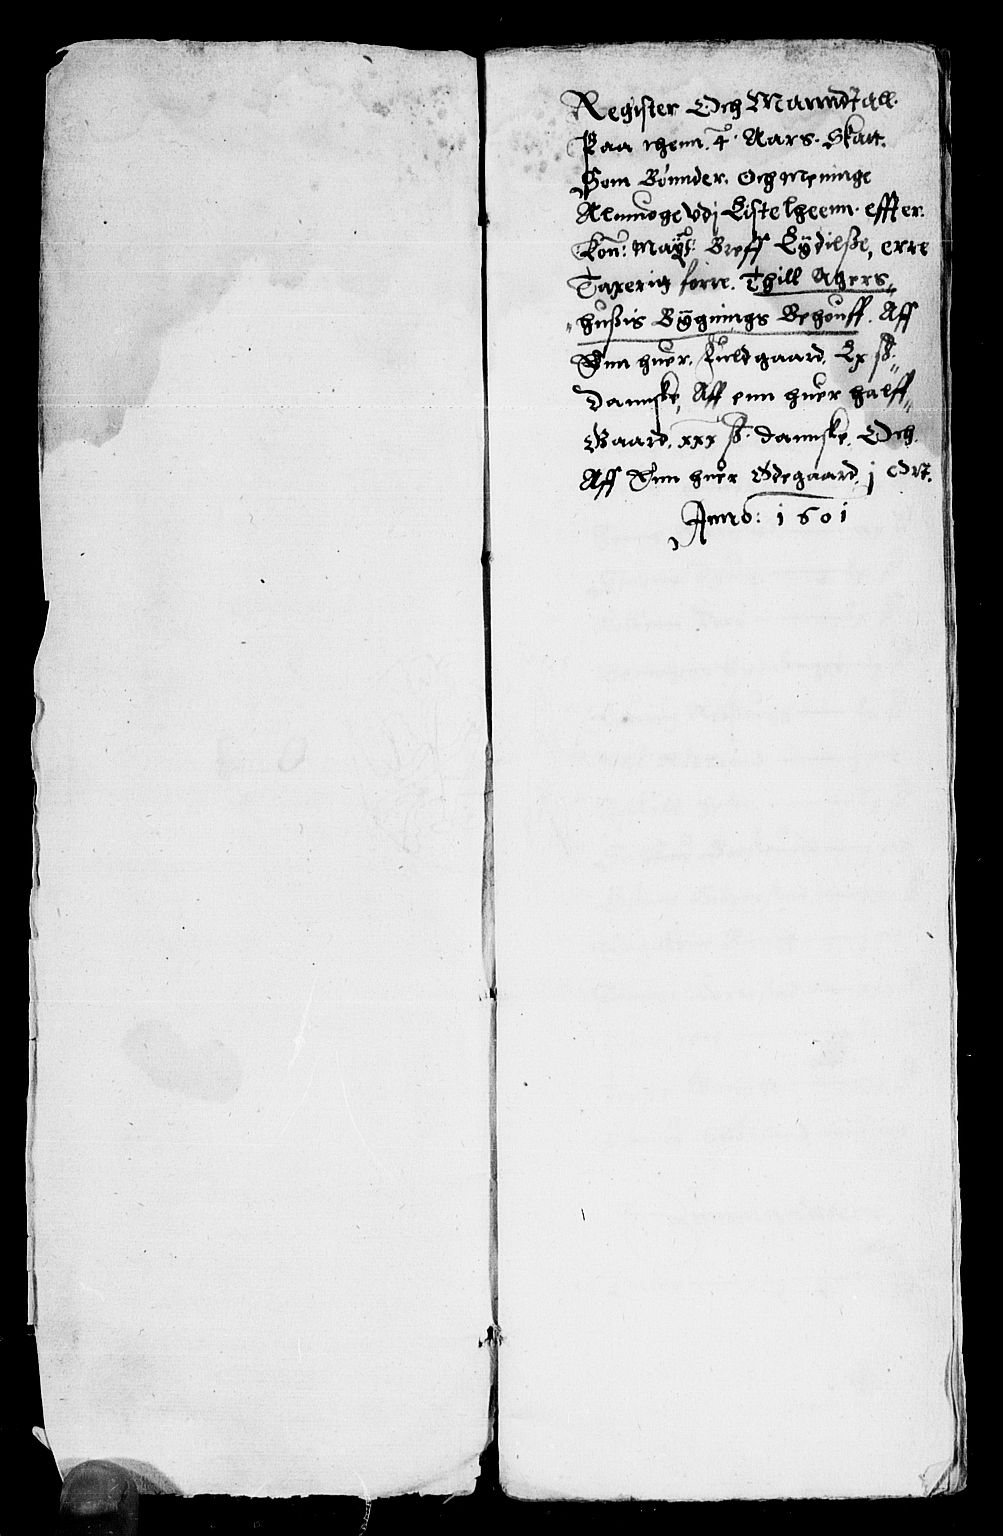 Register Och Manndtall
Paa thenn 4 Aars Skatt.
Som Bønnder. Och menninge
Almuoge Vdj Listelheenn effter.
Kon: Maÿ: Breff Lÿdilße, erre
Taxerit forre. Thill Agers„
„hußis Bÿgnings Behouff. Aff
Enn huer. Fuldgaard, Lx ß„
Dannske, Aff enn huer halff„
Gaard, xxx ß. dannske. Och
Aff Enn huer Ødegaard, j Ort.
Anno: 1601